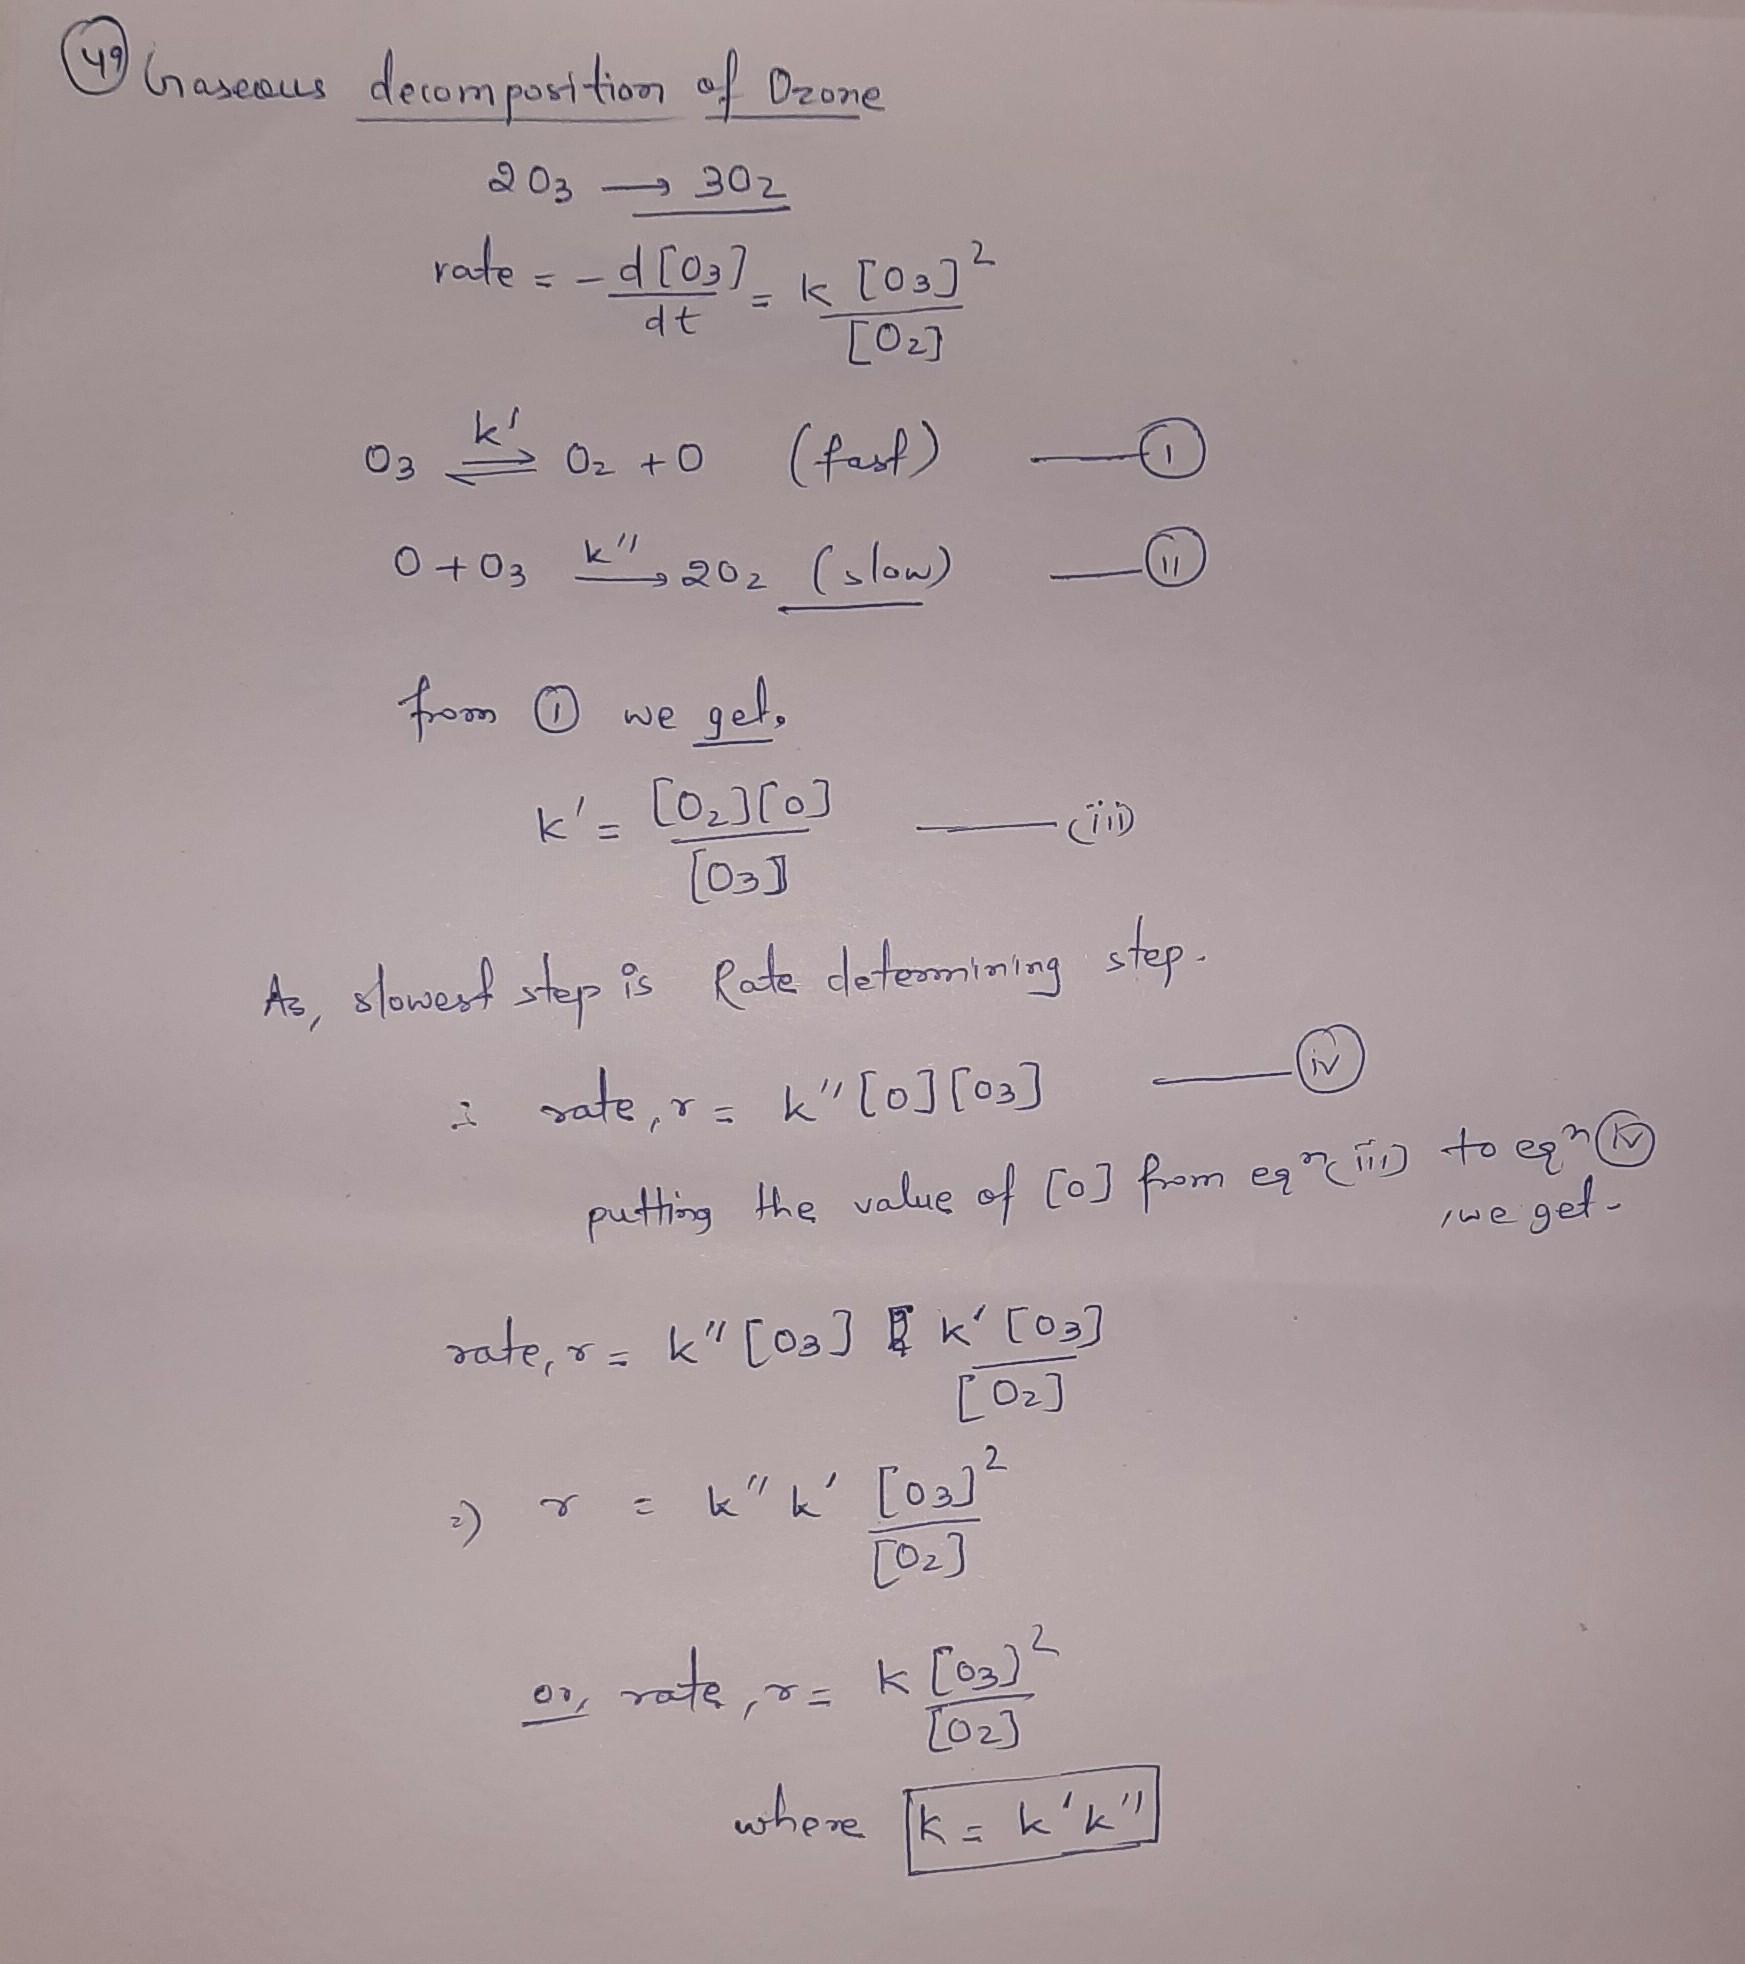 49 Gaseous decomposition of Ozone
2O3 → 3O2
rate = - d[O3]/dt = k [O3]²/[O2]
O3 ⇌ O2 + O (fast) — i
k'
O + O3 → 2O2 (slow) — ii
k''
from i we get,
k' = [O2][O]/[O3] — (iii)
As, slowest step is Rate determining step.
∴ rate, r = k'' [O][O3] — iv
putting the value of [O] from eqn (iii) to eqn iv
, we get -
rate, r = k'' [O3] k' [O3]/[O2]
⇒ r = k'' k' [O3]²/[O2]
or, rate, r = k [O3]²/[O2]
where k = k'k''